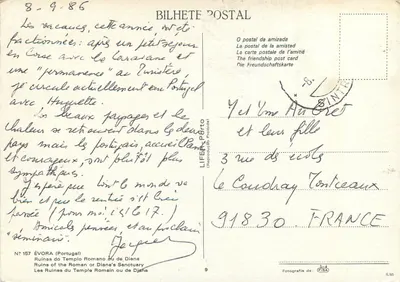 BILHETE POSTAL
8-9-86
Les vacances, cette année, ont été
fractionnées : après un petit séjour
en Corse avec la Caravane et
une "permanence" au ministère
je circule actuellement en Portugal
avec Huguette.
Les beaux paysages et la
chaleur se retrouvent dans les deux
pays mais les portugais, accueillants
et courageux, sont plutôt plus
sympathiques.
J'espère que tout le monde va
bien et que la rentrée s'est bien
passée (pour moi, c'est le 17.)
Amicales pensées, et au prochain
"séminaire".
Jacques
O postal da amizade
La postal de la amistad
La carte postale de l'amitié
The friendship post card
Die Freundschaftskarte
SINTRA
LIFER-Porto
M et Mme
et leur fille
3 rue des écoles
Le Coudray Montceaux
91830. FRANCE
Nº 157 ÉVORA (Portugal)
Ruínas do Templo Romano ou de Diana
Ruins of the Roman or Diana's Sanctuary
Les Ruines du Temple Romain ou de Diane
9
Fotografia de